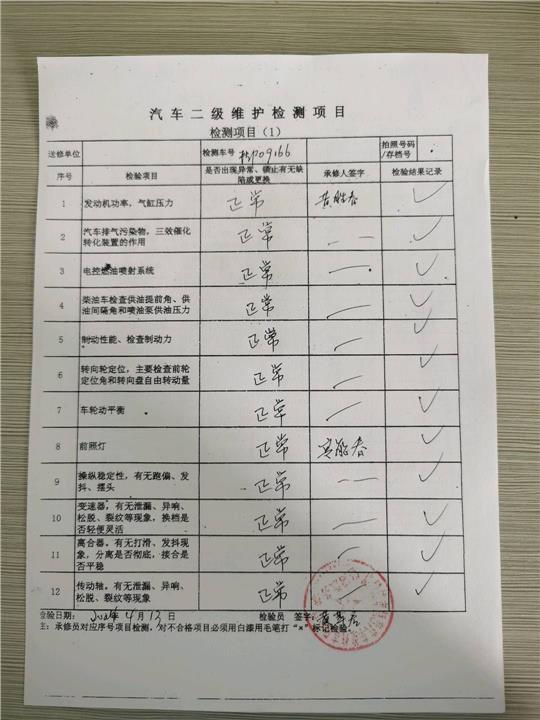 汽车二级维护检测项目
检测项目（1）
送修单位 检测车号 拍照号码/存档号
序号 检验项目 是否出现异常、磺止有无缺陷或更换 承修人签字 检验结果记录
1 发动机功率，气缸压力 正常 ✓
2 汽车排气污染物，三效催化转化装置的作用 正常 — — ✓
3 电控燃油喷射系统 正常 — ✓
4 柴油车检查供油提前角、供油间隔角和喷油泵供油压力 正常 — ✓
5 制动性能、检查制动力 正常 — ✓
6 转向轮定位，主要检查前轮定位角和转向盘自由转动量 正常 — ✓
7 车轮动平衡 正常 — ✓
8 前照灯 正常 ✓
9 操纵稳定性，有无跑偏、发抖、摆头 正常 — — ✓
10 变速器，有无泄漏、异响、松脱、裂纹等现象，换档是否轻便灵活 正常 — ✓
11 离合器。有无打滑、发抖现象，分离是否彻底，接合是否平稳 正常 — ✓
12 传动轴，有无泄漏、异响、松脱、裂纹等现象 正常 — ✓
检验日期： 4月13日 检验员 签字：
主：承修员对应序号项目检测，对不合格项目必须用白漆用毛笔打“×”标记检验。